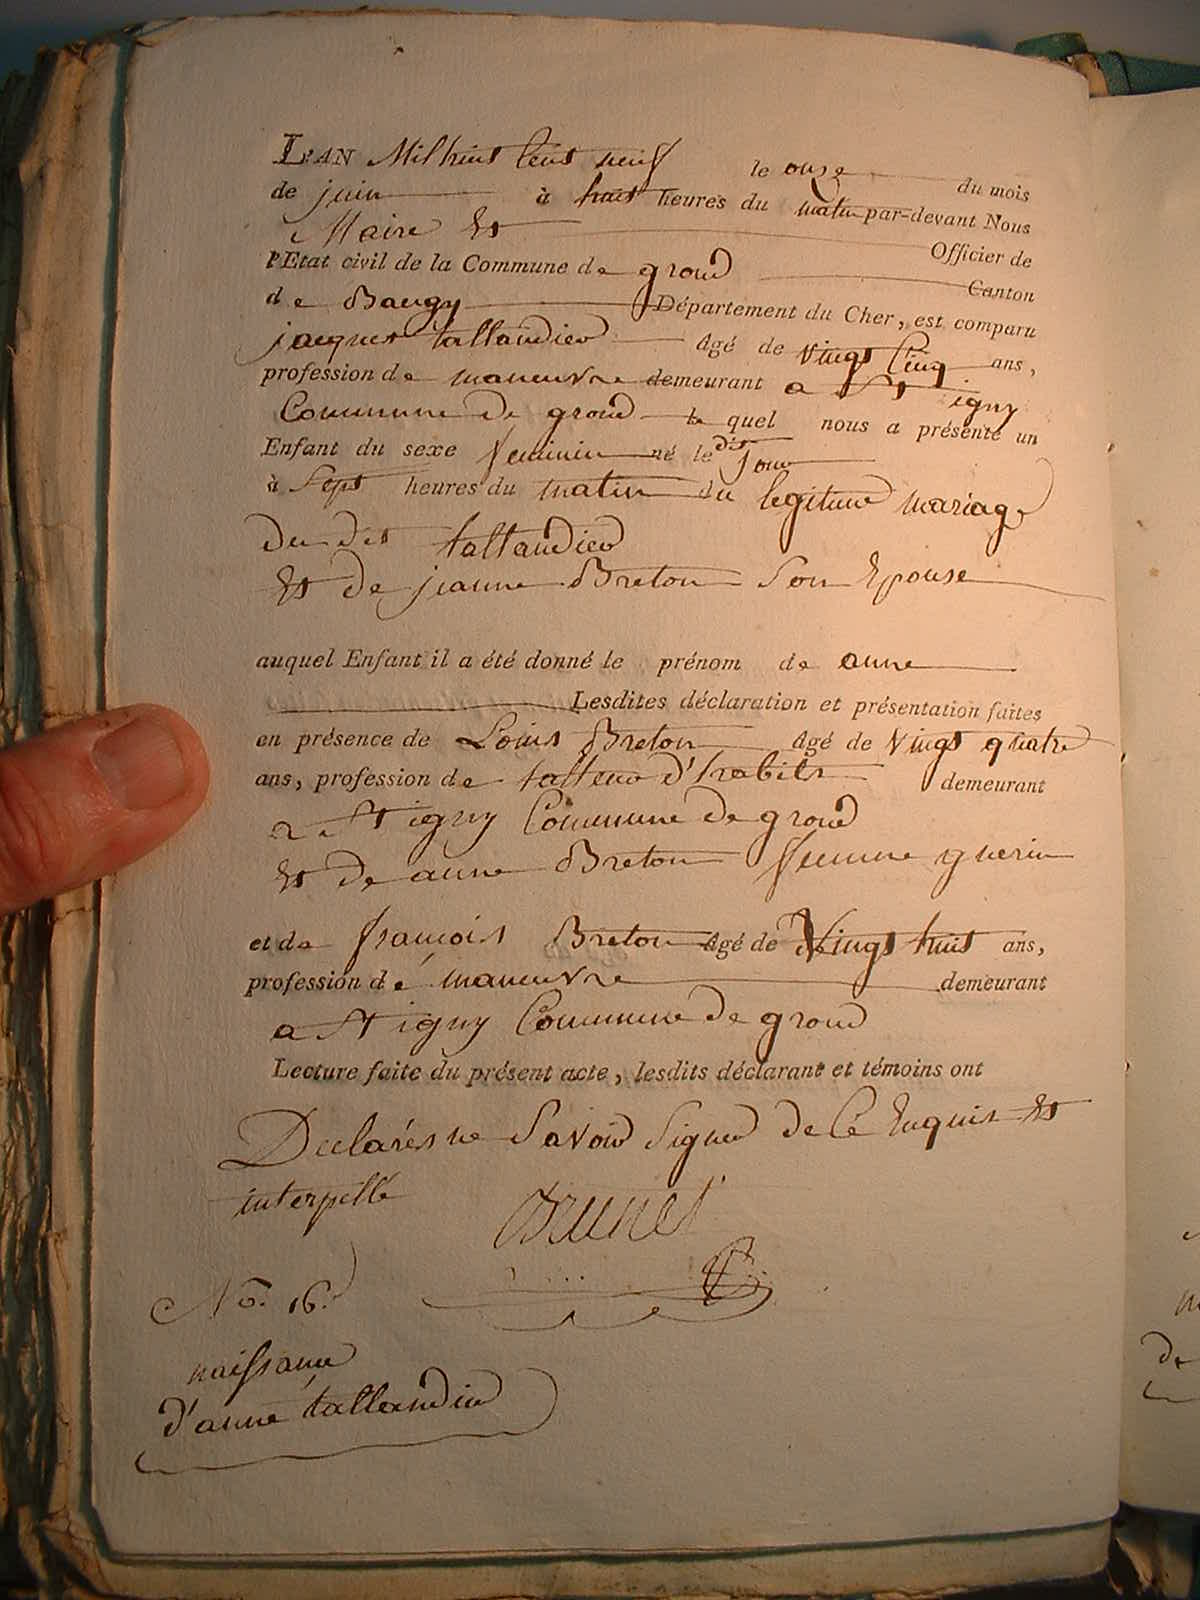 L'AN Mil huit Cent neuf le onze du mois
de juin à huit heures du matin par-devant Nous
Maire et Officier de
l'Etat civil de la Commune de grond Canton
de Baugy Département du Cher, est comparu
jacques tallandier Agé de vingt Cinq ans,
profession de maneuvre demeurant a St igny
Commune de grond le quel nous a présenté un
Enfant du sexe feminin né le dit jour
à Sept heures du matin du legitime mariage
du dit tallandier
et de jeanne Breton Son Epouse
auquel Enfant il a été donné le prénom de anne
Lesdites déclaration et présentation faites
en présence de Louis Breton Agé de vingt quatre
ans, profession de talleur d'habits demeurant
a St igny Commune de grond
et de anne Breton femme guerin
et de françois Breton Agé de vingt huit ans,
profession de maneuvre demeurant
a St igny Commune de grond
Lecture faite du présent acte, lesdits déclarant et témoins ont
Declarés ne Savoir Signer de Ce Enquis et
interpellé Brunet
No. 16.
naissance
d'anne tallandier